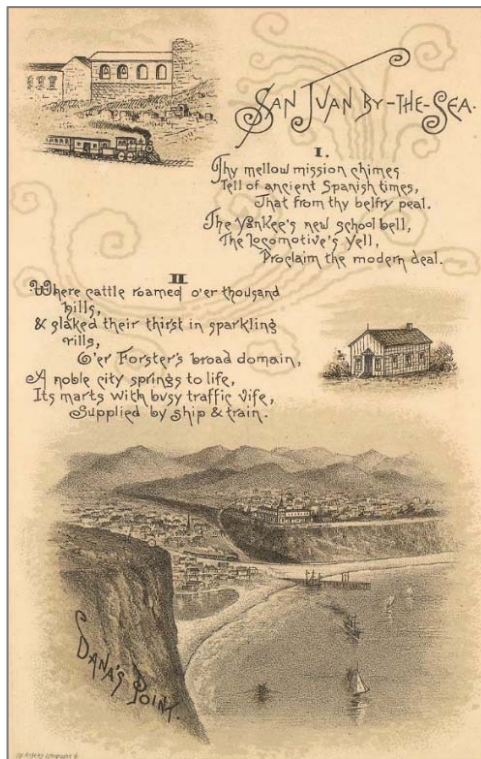 SAN JUAN BY-THE-SEA.
I.
Thy mellow mission chimes
Tell of ancient Spanish times,
That from thy belfry peal.
The Yankee's new school bell,
The locomotive's yell,
Proclaim the modern deal.
II
Where cattle roamed o'er thousand
hills,
& slaked their thirst in sparkling
rills,
O'er Forster's broad domain,
A noble city springs to life,
Its marts with busy traffic vife,
Supplied by ship & train.
DANA'S POINT.